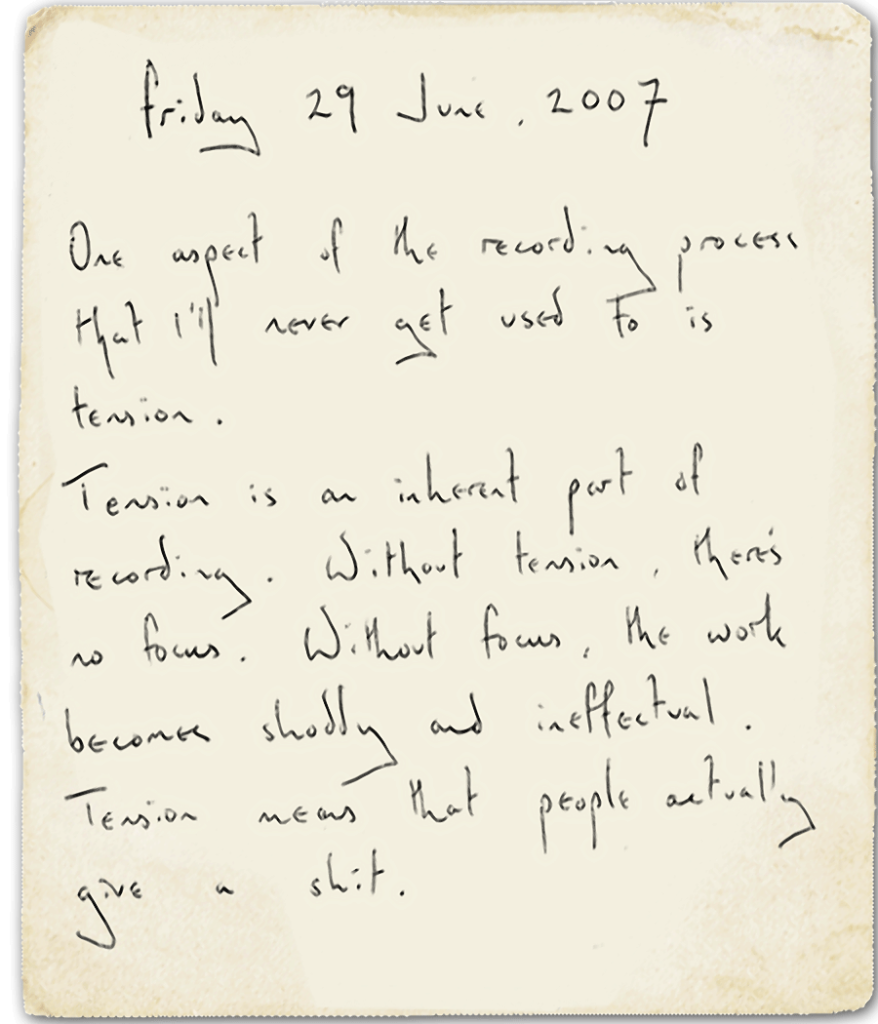 Friday 29 June, 2007
One aspect of the recording process
that I'll never get used to is
tension.
Tension is an inherent part of
recording. Without tension, there's
no focus. Without focus, the work
becomes shoddy and ineffectual.
Tension means that people actually
give a shit.